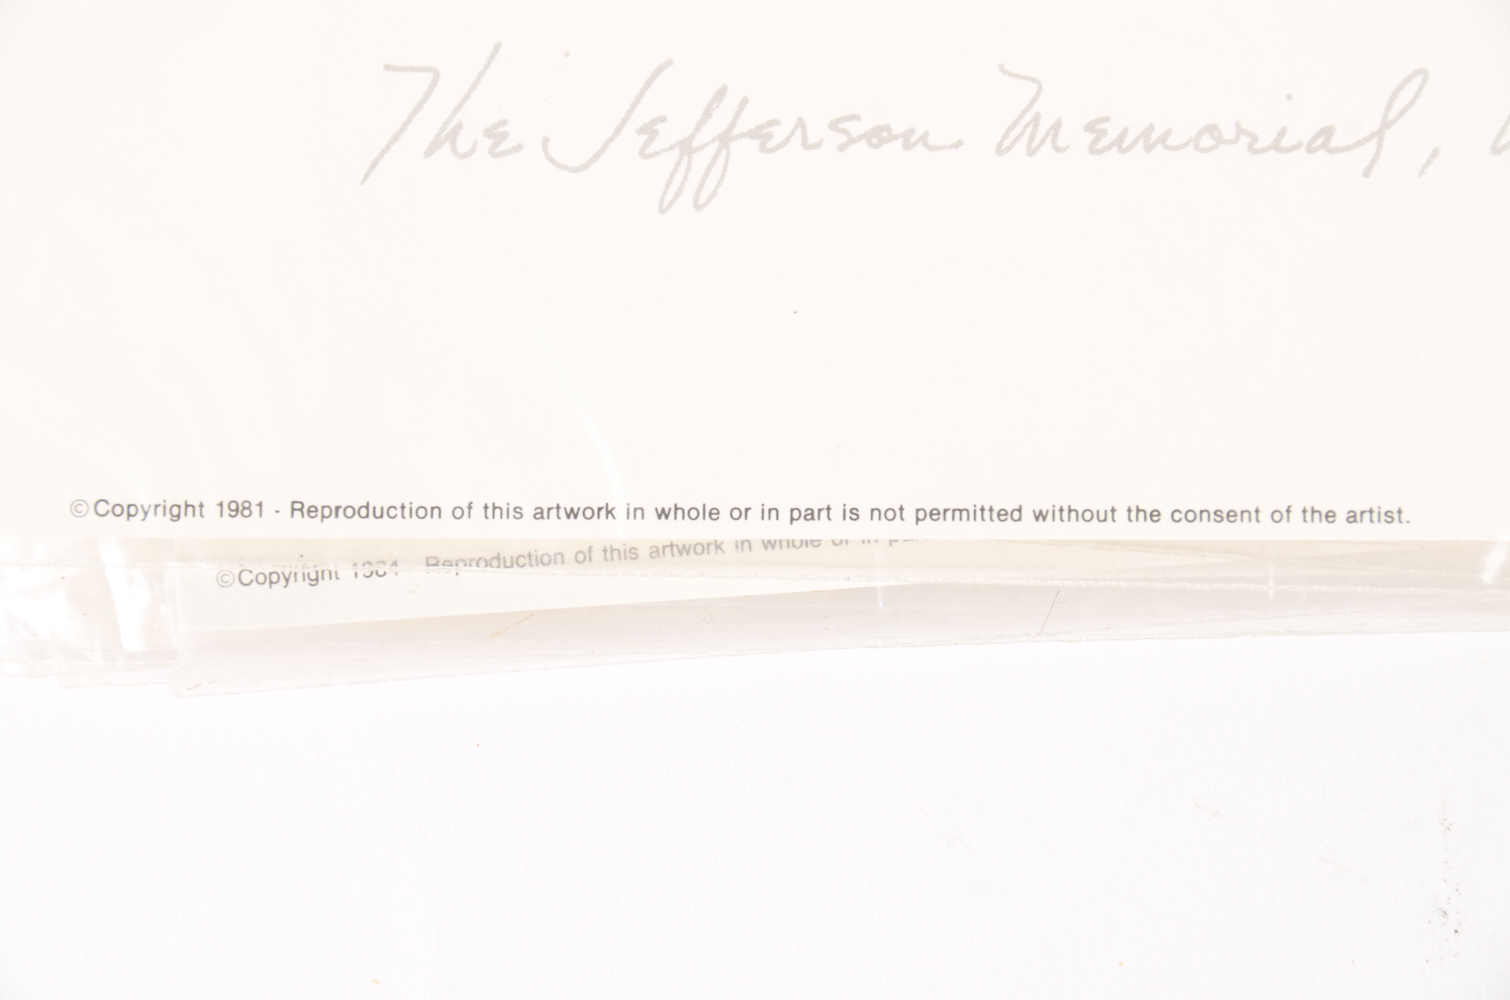 The Jefferson Memorial,
©Copyright 1981 - Reproduction of this artwork in whole or in part is not permitted without the consent of the artist.
©Copyright 1984 Reproduction of this artwork in whole or in